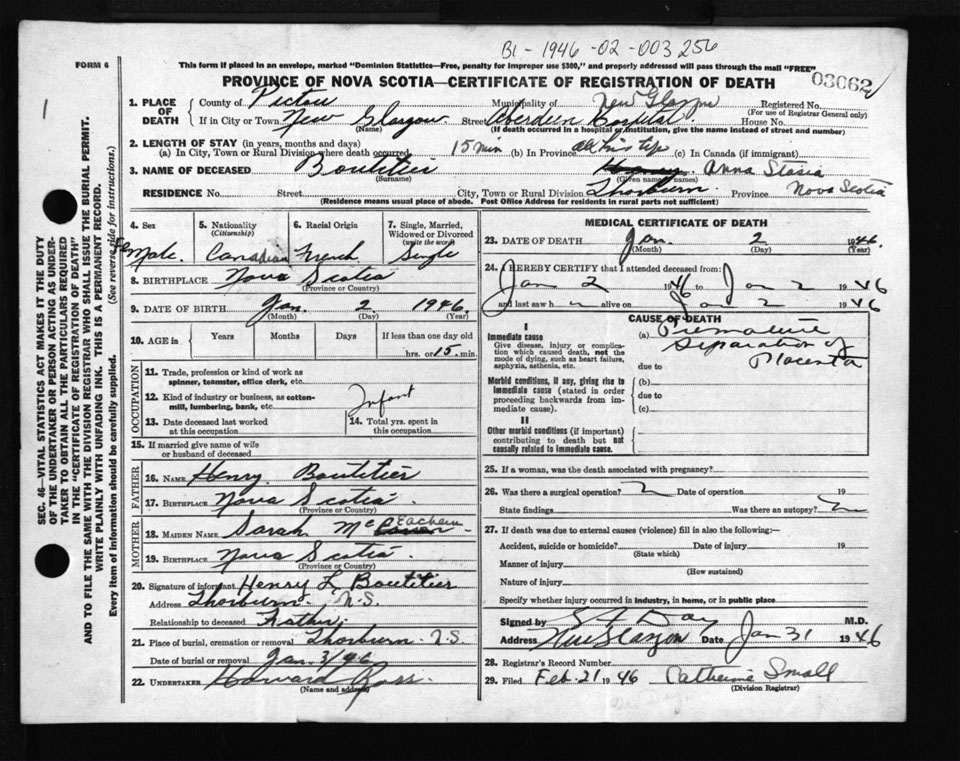 B1-1946-02-003256
FORM 6
This form if placed in an envelope, marked "Dominion Statistics—Free, penalty for improper use $300," and properly addressed will pass through the mail "FREE"
PROVINCE OF NOVA SCOTIA—CERTIFICATE OF REGISTRATION OF DEATH
03062
SEC. 46—VITAL STATISTICS ACT MAKES IT THE DUTY
OF THE UNDERTAKER OR PERSON ACTING AS UNDER-
TAKER TO OBTAIN ALL THE PARTICULARS REQUIRED
IN THE "CERTIFICATE OF REGISTRATION OF DEATH"
AND TO FILE THE SAME WITH THE DIVISION REGISTRAR WHO SHALL ISSUE THE BURIAL PERMIT.
WRITE PLAINLY WITH UNFADING INK. THIS IS A PERMANENT RECORD.
Every item of information should be carefully supplied. (See reverse side for instructions.)
1. PLACE OF DEATH
County of Pictou Municipality of New Glasgow Registered No.
(For use of Registrar General only)
If in City or Town New Glasgow Street Aberdeen Hospital House No.
(Name) (If death occurred in a hospital or institution, give the name instead of street and number)
2. LENGTH OF STAY (in years, months and days)
(a) In City, Town or Rural Division where death occurred 15 min (b) In Province all his life (c) In Canada (if immigrant)
3. NAME OF DECEASED Boutilier Anna
(Surname) (Given name or names)
RESIDENCE No. Street City, Town or Rural Division Thorburn Province Nova Scotia
(Residence means usual place of abode. Post Office Address for residents in rural parts not sufficient)
4. Sex
5. Nationality
(Citizenship)
6. Racial Origin
7. Single, Married,
Widowed or Divorced
(write the word)
Female Canadian French Single
8. BIRTHPLACE Nova Scotia
(Province or Country)
9. DATE OF BIRTH Jan. 2 1946
(Month) (Day) (Year)
10. AGE in Years Months Days If less than one day old
hrs. or 15 min.
OCCUPATION
11. Trade, profession or kind of work as
spinner, teamster, office clerk, etc.
12. Kind of industry or business, as cotton-
mill, lumbering, bank, etc. Infant
13. Date deceased last worked
at this occupation
14. Total yrs. spent in
this occupation
15. If married give name of wife
or husband of deceased
FATHER
16. NAME Henry Boutilier
17. BIRTHPLACE Nova Scotia
(Province or Country)
MOTHER
18. MAIDEN NAME Sarah McEachern
19. BIRTHPLACE Nova Scotia
(Province or Country)
20. Signature of informant Henry L Boutilier
Address Thorburn, N.S.
Relationship to deceased Father
21. Place of burial, cremation or removal Thorburn N.S.
Date of burial or removal Jan. 3/46
22. UNDERTAKER Howard Ross
(Name and address)
MEDICAL CERTIFICATE OF DEATH
23. DATE OF DEATH Jan. 2 1946
(Month) (Day) (Year)
24. I HEREBY CERTIFY that I attended deceased from:
Jan 2 1946 to Jan 2 1946
and last saw h alive on Jan 2 1946
CAUSE OF DEATH
I
Immediate cause
Give disease, injury or complica-
tion which caused death, not the
mode of dying, such as heart failure,
asphyxia, asthenia, etc.
(a) Premature
Separation of
Placenta
due to
Morbid conditions, if any, giving rise to
immediate cause (stated in order
proceeding backwards from im-
mediate cause).
(b)
due to
(c)
II
Other morbid conditions (if important)
contributing to death but not
causally related to immediate cause.
25. If a woman, was the death associated with pregnancy?
26. Was there a surgical operation? Date of operation 19
State findings Was there an autopsy?
27. If death was due to external causes (violence) fill in also the following:—
Accident, suicide or homicide? Date of injury 19
(State which)
Manner of injury
(How sustained)
Nature of injury
Specify whether injury occurred in industry, in home, or in public place
Signed by Day M.D.
Address New Glasgow Date Jan 31 1946
28. Registrar's Record Number
29. Filed Feb. 21 1946 Catherine Small
(Division Registrar)